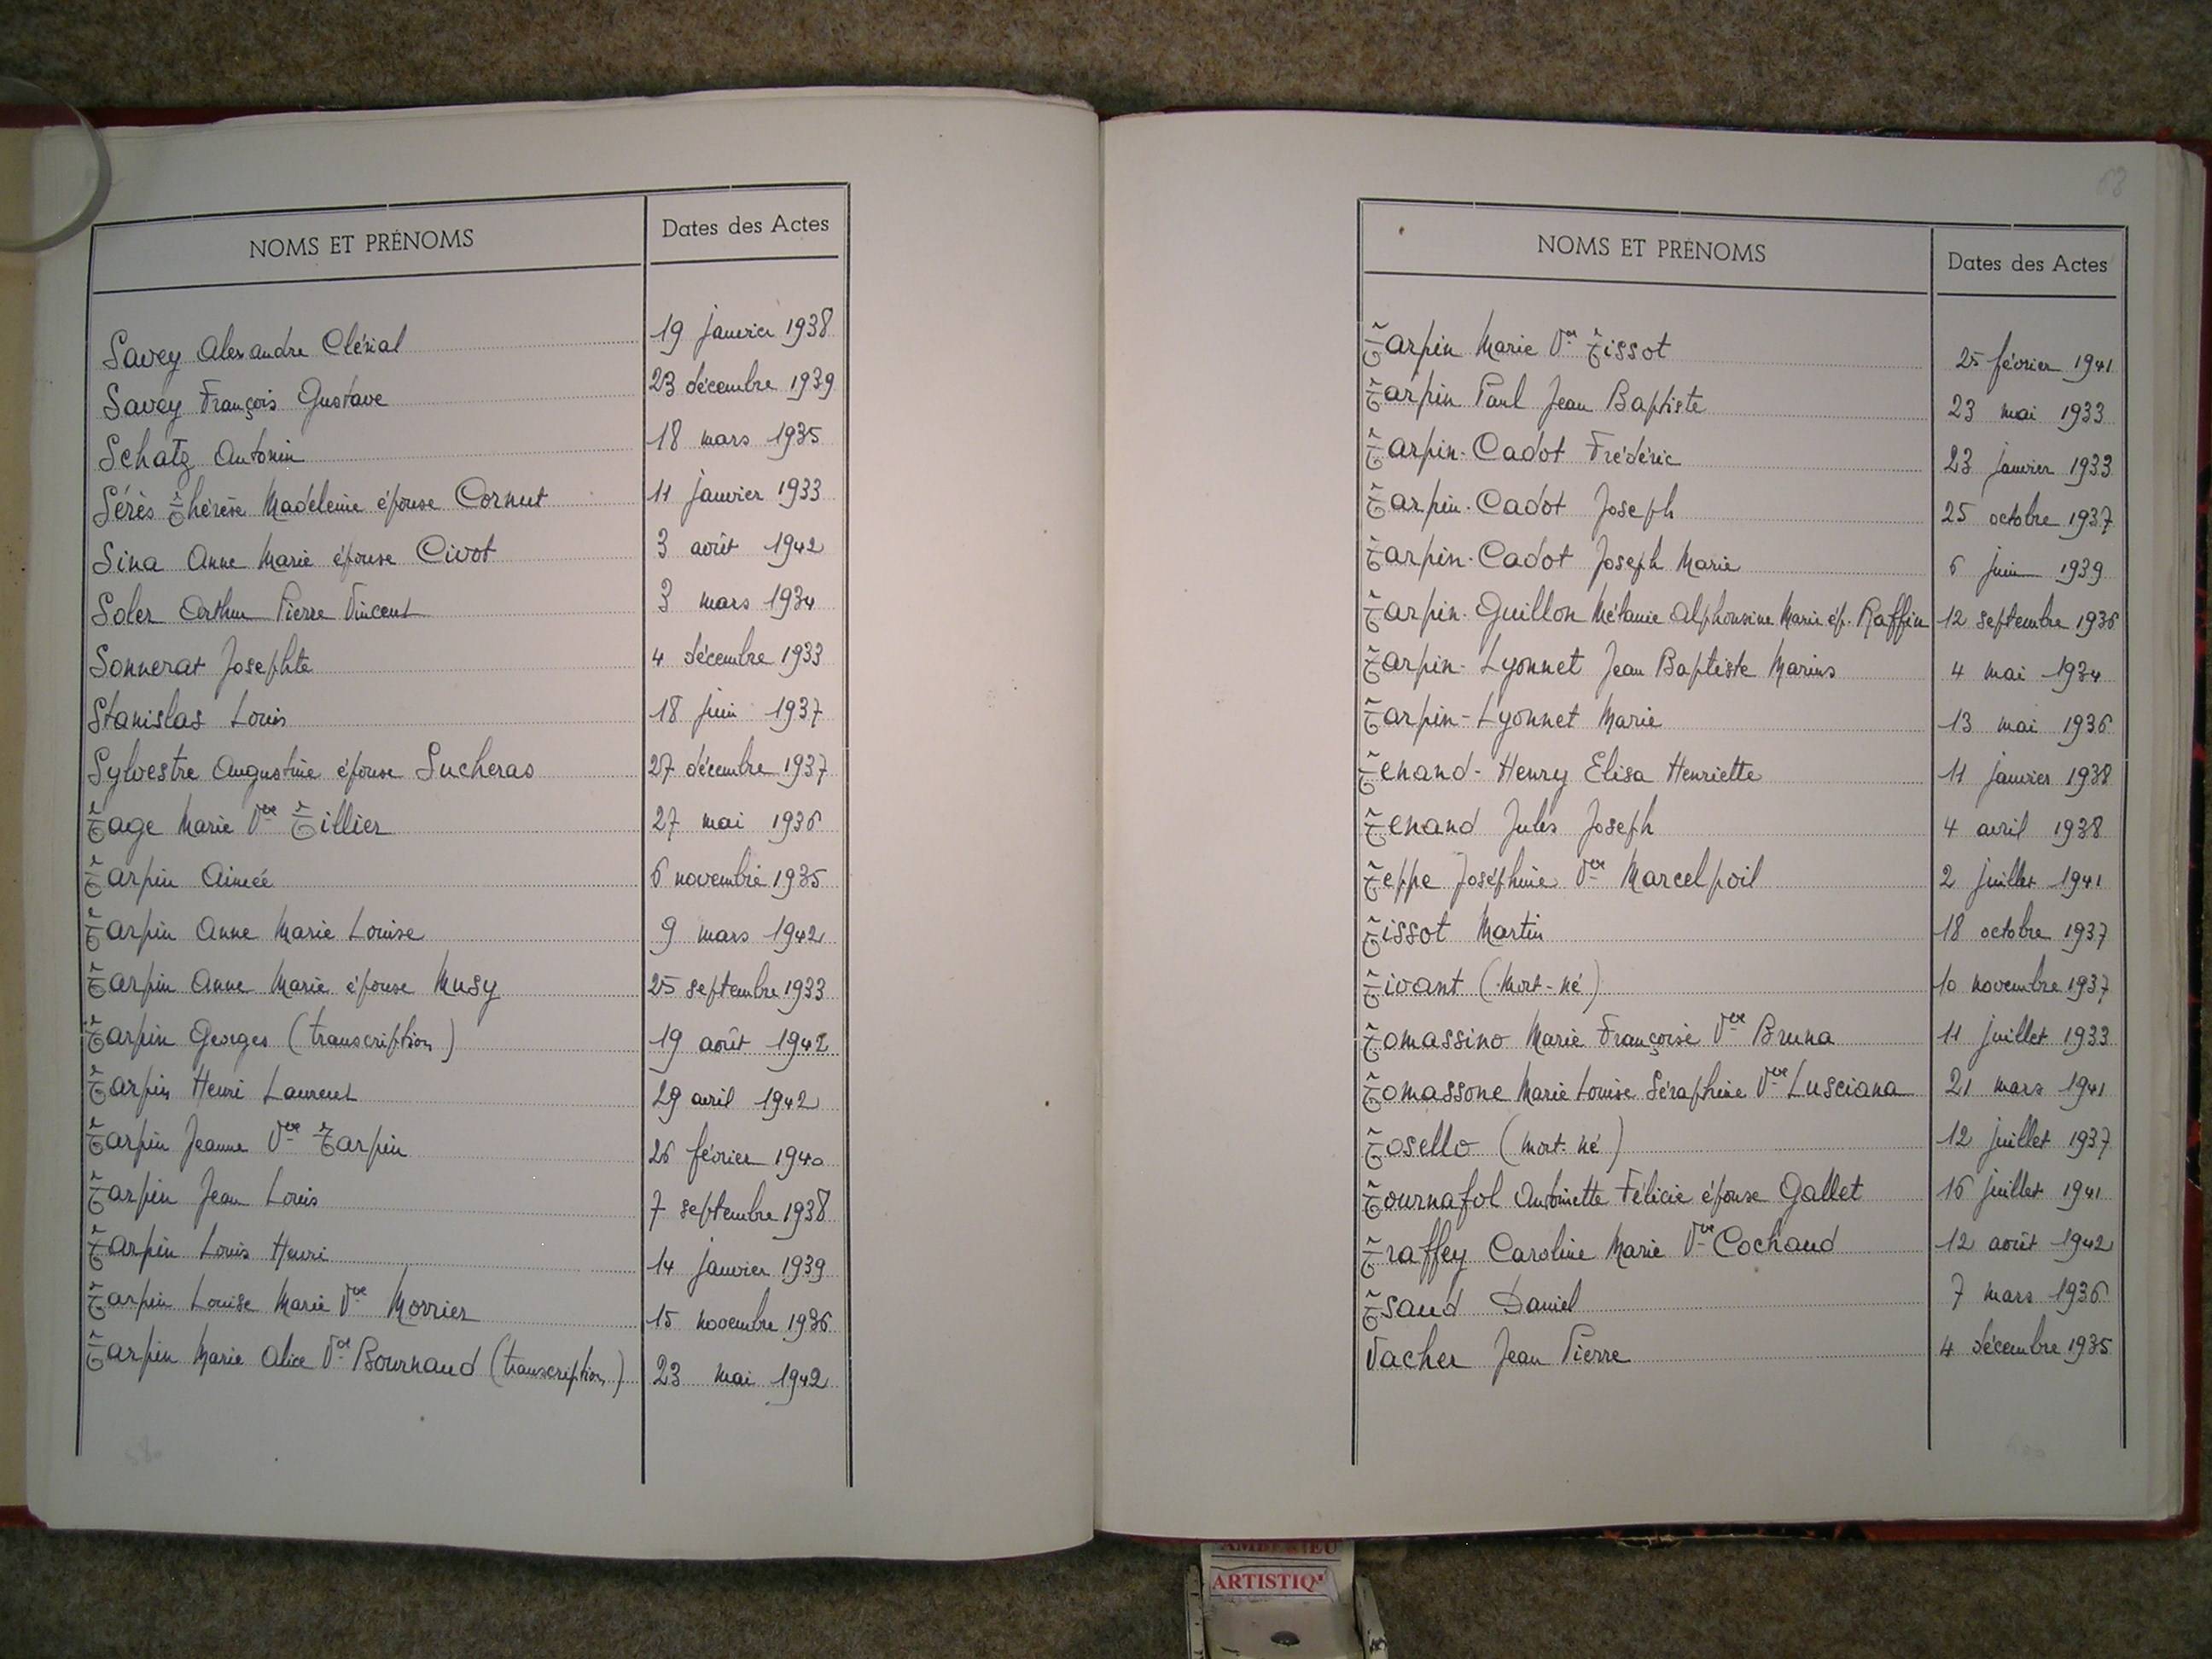 NOMS ET PRÉNOMS Dates des Actes
Savey Alexandre Clérial 19 janvier 1938
Savey François Gustave 23 décembre 1939
Schatz Antonin 18 mars 1935
Sérès Thérèse Madeleine épouse Cornut 11 janvier 1933
Sina Anne Marie épouse Civot 3 août 1942
Soler Arthur Pierre Vincent 3 mars 1934
Sonnerat Josephte 4 décembre 1933
Stanislas Louis 18 juin 1937
Sylvestre Augustine épouse Sucheras 27 décembre 1937
Tage Marie Vve Tillier 27 mai 1936
Tarpin Aimée 6 novembre 1935
Tarpin Anne Marie Louise 9 mars 1942
Tarpin Anne Marie épouse Musy 25 septembre 1933
Tarpin Georges (transcription) 19 août 1942
Tarpin Henri Laurent 29 avril 1942
Tarpin Jeanne Vve Tarpin 26 février 1940
Tarpin Jean Louis 7 septembre 1938
Tarpin Louis Henri 14 janvier 1939
Tarpin Louise Marie Vve Morrier 15 novembre 1936
Tarpin Marie Alice Vve Bournaud (transcription) 23 mai 1942
NOMS ET PRÉNOMS Dates des Actes
Tarpin Marie Vve Tissot 25 février 1941
Tarpin Paul Jean Baptiste 23 mai 1933
Tarpin-Cadot Frédéric 23 janvier 1933
Tarpin-Cadot Joseph 25 octobre 1937
Tarpin-Cadot Joseph Marie 6 juin 1939
Tarpin-Guillon Mélanie Alphonsine Marie ép. Raffin 12 septembre 1936
Tarpin-Lyonnet Jean Baptiste Marius 4 mai 1934
Tarpin-Lyonnet Marie 13 mai 1936
Tenand-Henry Elisa Henriette 11 janvier 1938
Tenand Jules Joseph 4 avril 1938
Teppe Joséphine Vve Marcelpoil 2 juillet 1941
Tissot Martin 18 octobre 1937
Tivant (mort-né) 10 novembre 1937
Tomassino Marie Françoise Vve Bruna 11 juillet 1933
Tomassone Marie Louise Séraphine Vve Lusciana 21 mars 1941
Tosello (mort-né) 12 juillet 1937
Tournafol Antoinette Félicie épouse Gallet 16 juillet 1941
Traffey Caroline Marie Vve Cochaud 12 août 1942
Tsaud Daniel 7 mars 1936
Vacher Jean Pierre 4 décembre 1935
AMBERIEU
ARTISTIQ